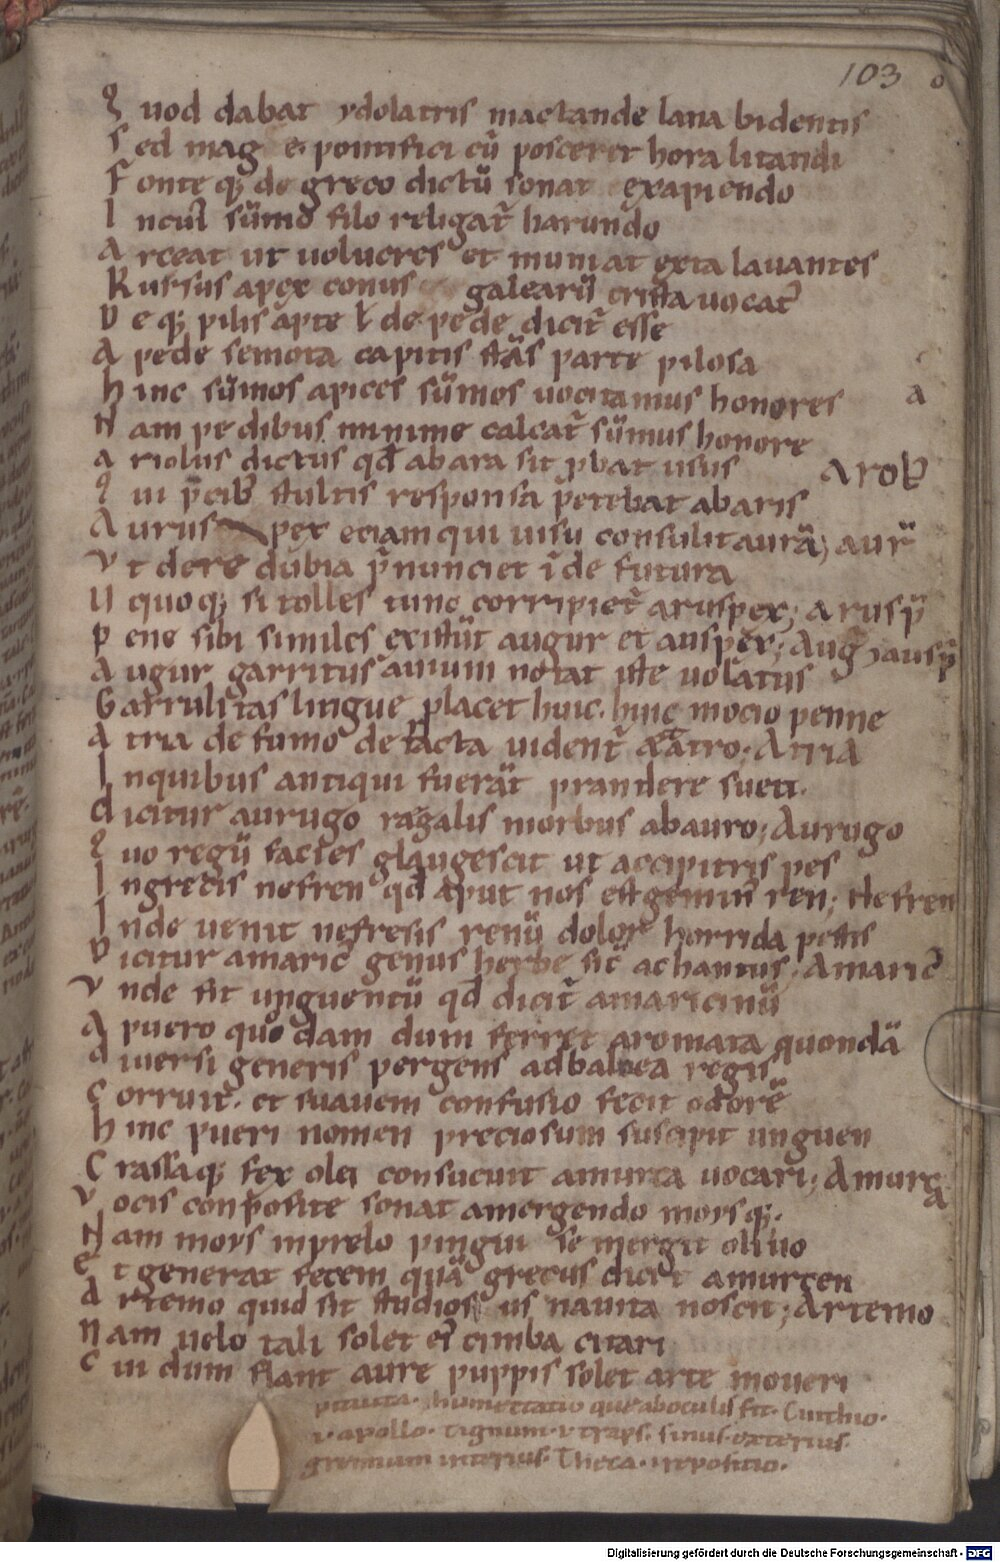 103
Quod dabat ydolatris mactande lana bidentis
Sed mag e. pontifici cū posceret hora litandi
Fonte q; de greco dictū sonat exapiendo
In cui summo filo religat̄ harundo
Arceat ut uolucres et muniat exta lauantes
Russus apex conus galearū crista uocat̄
De q; pilis apte l de pede dicit̄ esse
A pede semota capitis stās parte pilosa
Hinc sūmos apices sūmos uocitamus honores a
Nam pedibus minime calcat̄ sūmus honore
ariolus dictus qd abara sit pbat usus Ariol
qui p̄cib stultis responsa p̄etebat abaris
Auruspex eciam qui uisu consulit aurā; aur
Vt dere dubia p̄nunciet īde futura
U quoq; si tolles tunc corripiet̄ aruspex; Arusp
pene sibi similes existūt augur et auspex; Aug ausp
Augur garritus auium notat iste uolatus
Garrulitas lingue placet huic. hinc mocio penne
Atria de fumo de facta uident̄ atro; Atria
Inquibus antiqui fuerāt prandere sueti.
dicitur aurugo ragalis morbus abauro; Aurugo
Quo regū facies glaugescit ut accipitris pes
Ingredis nefren qd aput nos est gemin ren; Nefren
Inde uenit nefresis renū dolor horrida pestis
Dicitur amaric genus herbe sic achantus; Amaric
Vnde fit unguentū qd dicit̄ amaricinū
A puero quodam dum ferret aromata quondā
diuersi generis pergens ad baltea regis
Corruit. et suauem confusio fecit odorē
Hinc pueri nomen preciosum suscipit unguen
Crassaq; fex olei consueuit amurca uocari; Amurca
Vocis conposite sonat amergendo moysq;.
Nam moys inprelo pingui se mergit oliuo
Et generat fecem quā grecus dicit amurcen
Artemo quid sit studiosius nauita noscit; Artemo
Nam uelo tali solet ei cimba citari
Cui dum flant aure puppis solet arte moueri
pituita. humectatio que aboculis fit. Cinthio.
v. apollo. tignum. v traps. sinus. exterius.
gremium interius. Theca. repositio.
Digitalisierung gefördert durch die Deutsche Forschungsgemeinschaft - DFG